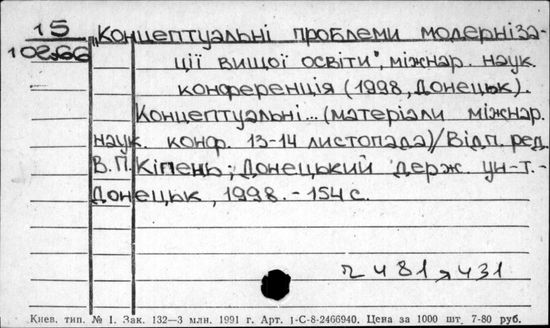 15 „Концептуальні проблеми модерніза-
108266 ції вищої освіти", міжнар. наук.
конференція (1998, Донецьк).
Концептуальні... (матеріали міжнар.
наук. конф. 13-14 листопада)/Відп. ред.
В.П.Кіпень; Донецький держ. ун-т.-
Донецьк, 1998.-154 с.
481 431
Киев. тип. № 1. Зак. 132—3 млн. 1991 г. Арт. 1-С-8-2466940. Цена за 1000 шт. 7-80 руб.